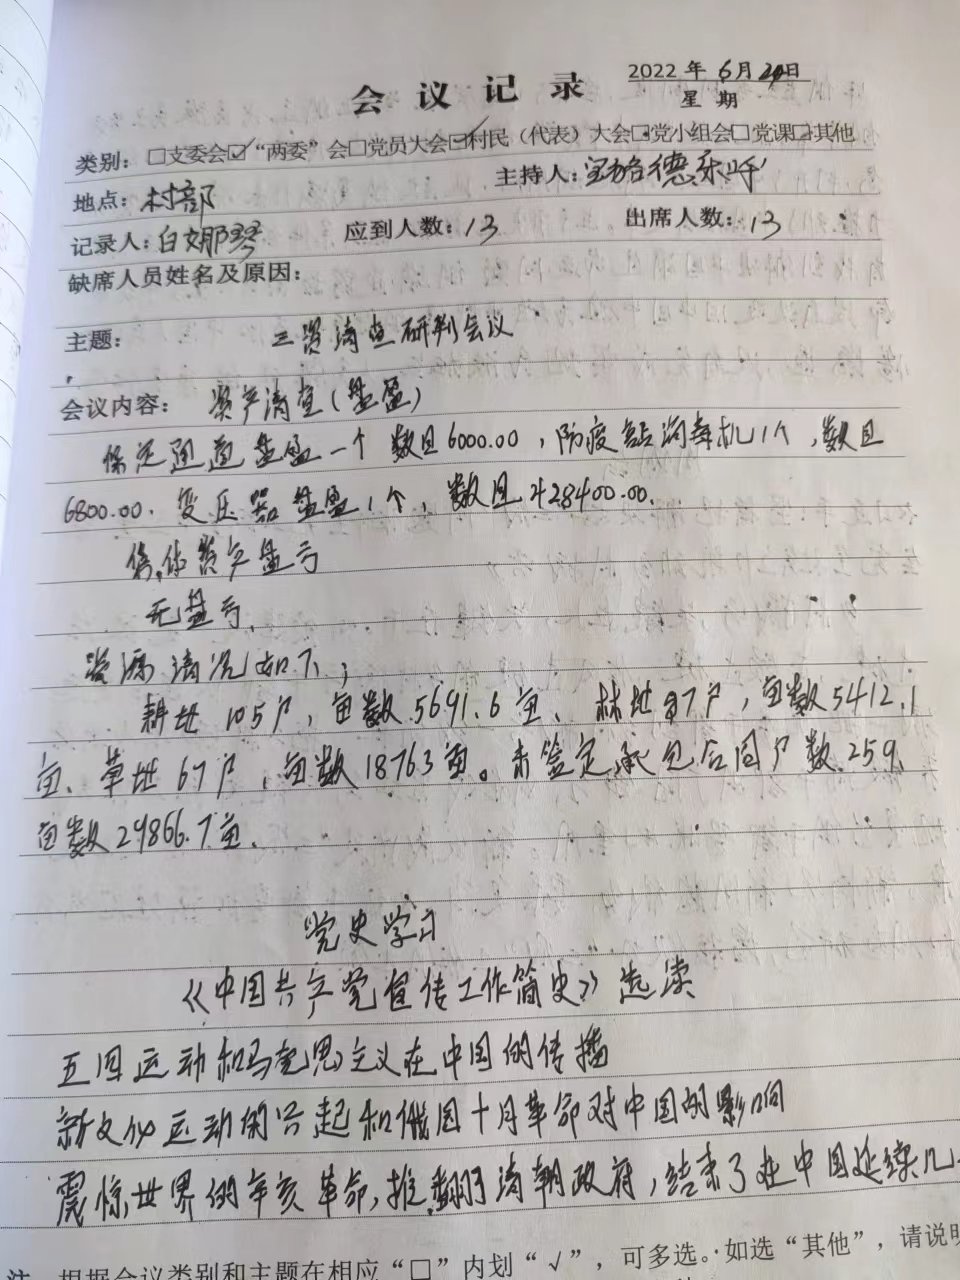 会议记录
2022年6月24日
星期
类别：□支委会☑“两委”会□党员大会☑村民（代表）大会□党小组会□党课□其他
地点：村部 主持人：宝勒德
记录人：白娜琴 应到人数：13 出席人数：13
缺席人员姓名及原因：
主题： 三资清查研判会议
会议内容： 资产清查（盘盈）
保温 盘盈一个 数目6000.00，防疫 消毒机1个，数目
6800.00. 变压器盘盈1个，数目428400.00.
资产盘亏
无盘亏、
资源清况如下；
耕地105户，亩数5691.6亩、林地87户，亩数5412.1
亩、草地67户，亩数18763亩。未签定承包合同户数259，
亩数29866.7亩、
党史学习
《中国共产党宣传工作简史》选读
五四运动和马克思主义在中国的传播
新文化运动的兴起和俄国十月革命对中国的影响
震惊世界的辛亥革命，推翻了清朝政府，结束了在中国延续几
注 根据会议类别和主题在相应“□”内划“√”，可多选。如选“其他”，请说明